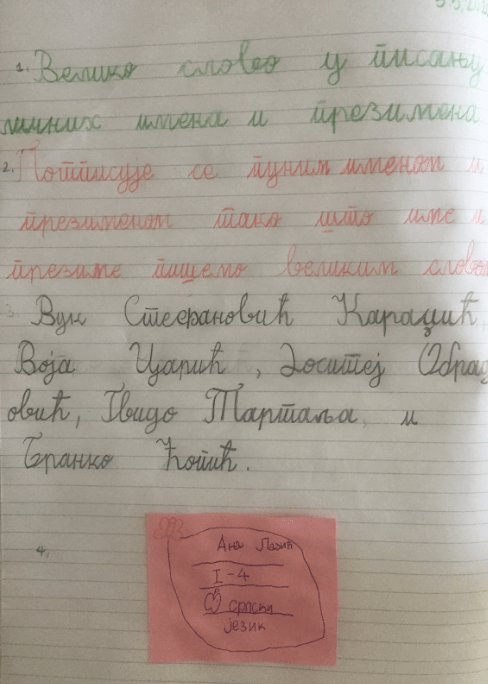 1. Велико слово у писању
личних имена и презимена
2. Потписује се пуним именом и
презименом тако што име и
презиме пишемо великим словом
3. Вук Стефановић Караџић,
Воја Царић, Доситеј Обрад
овић, Гвидо Тартаља и
Бранко Ћопић.
4.
Ана Лазић
I-4
српски
језик